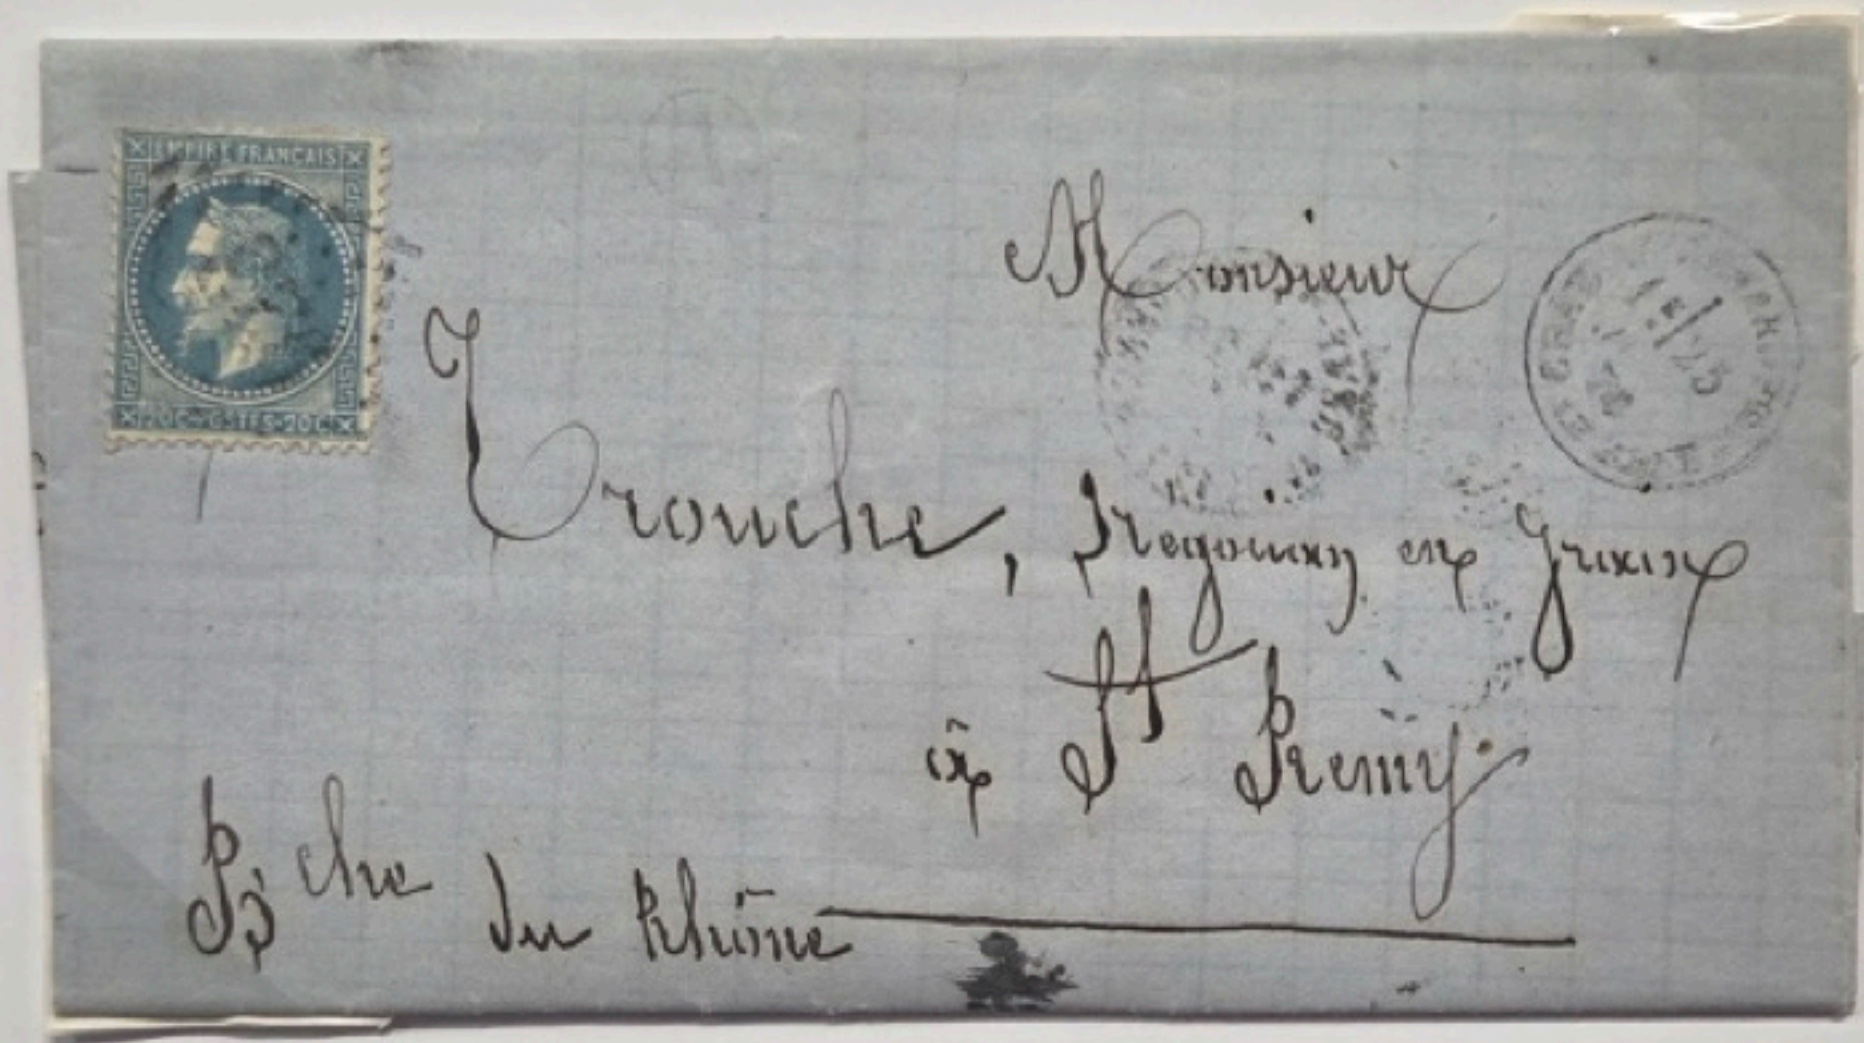 EMPIRE FRANÇAIS
20C POSTES 20C
Monsieur
Trouche, Negociant en Grains
à St Remy.
Bche du Rhône